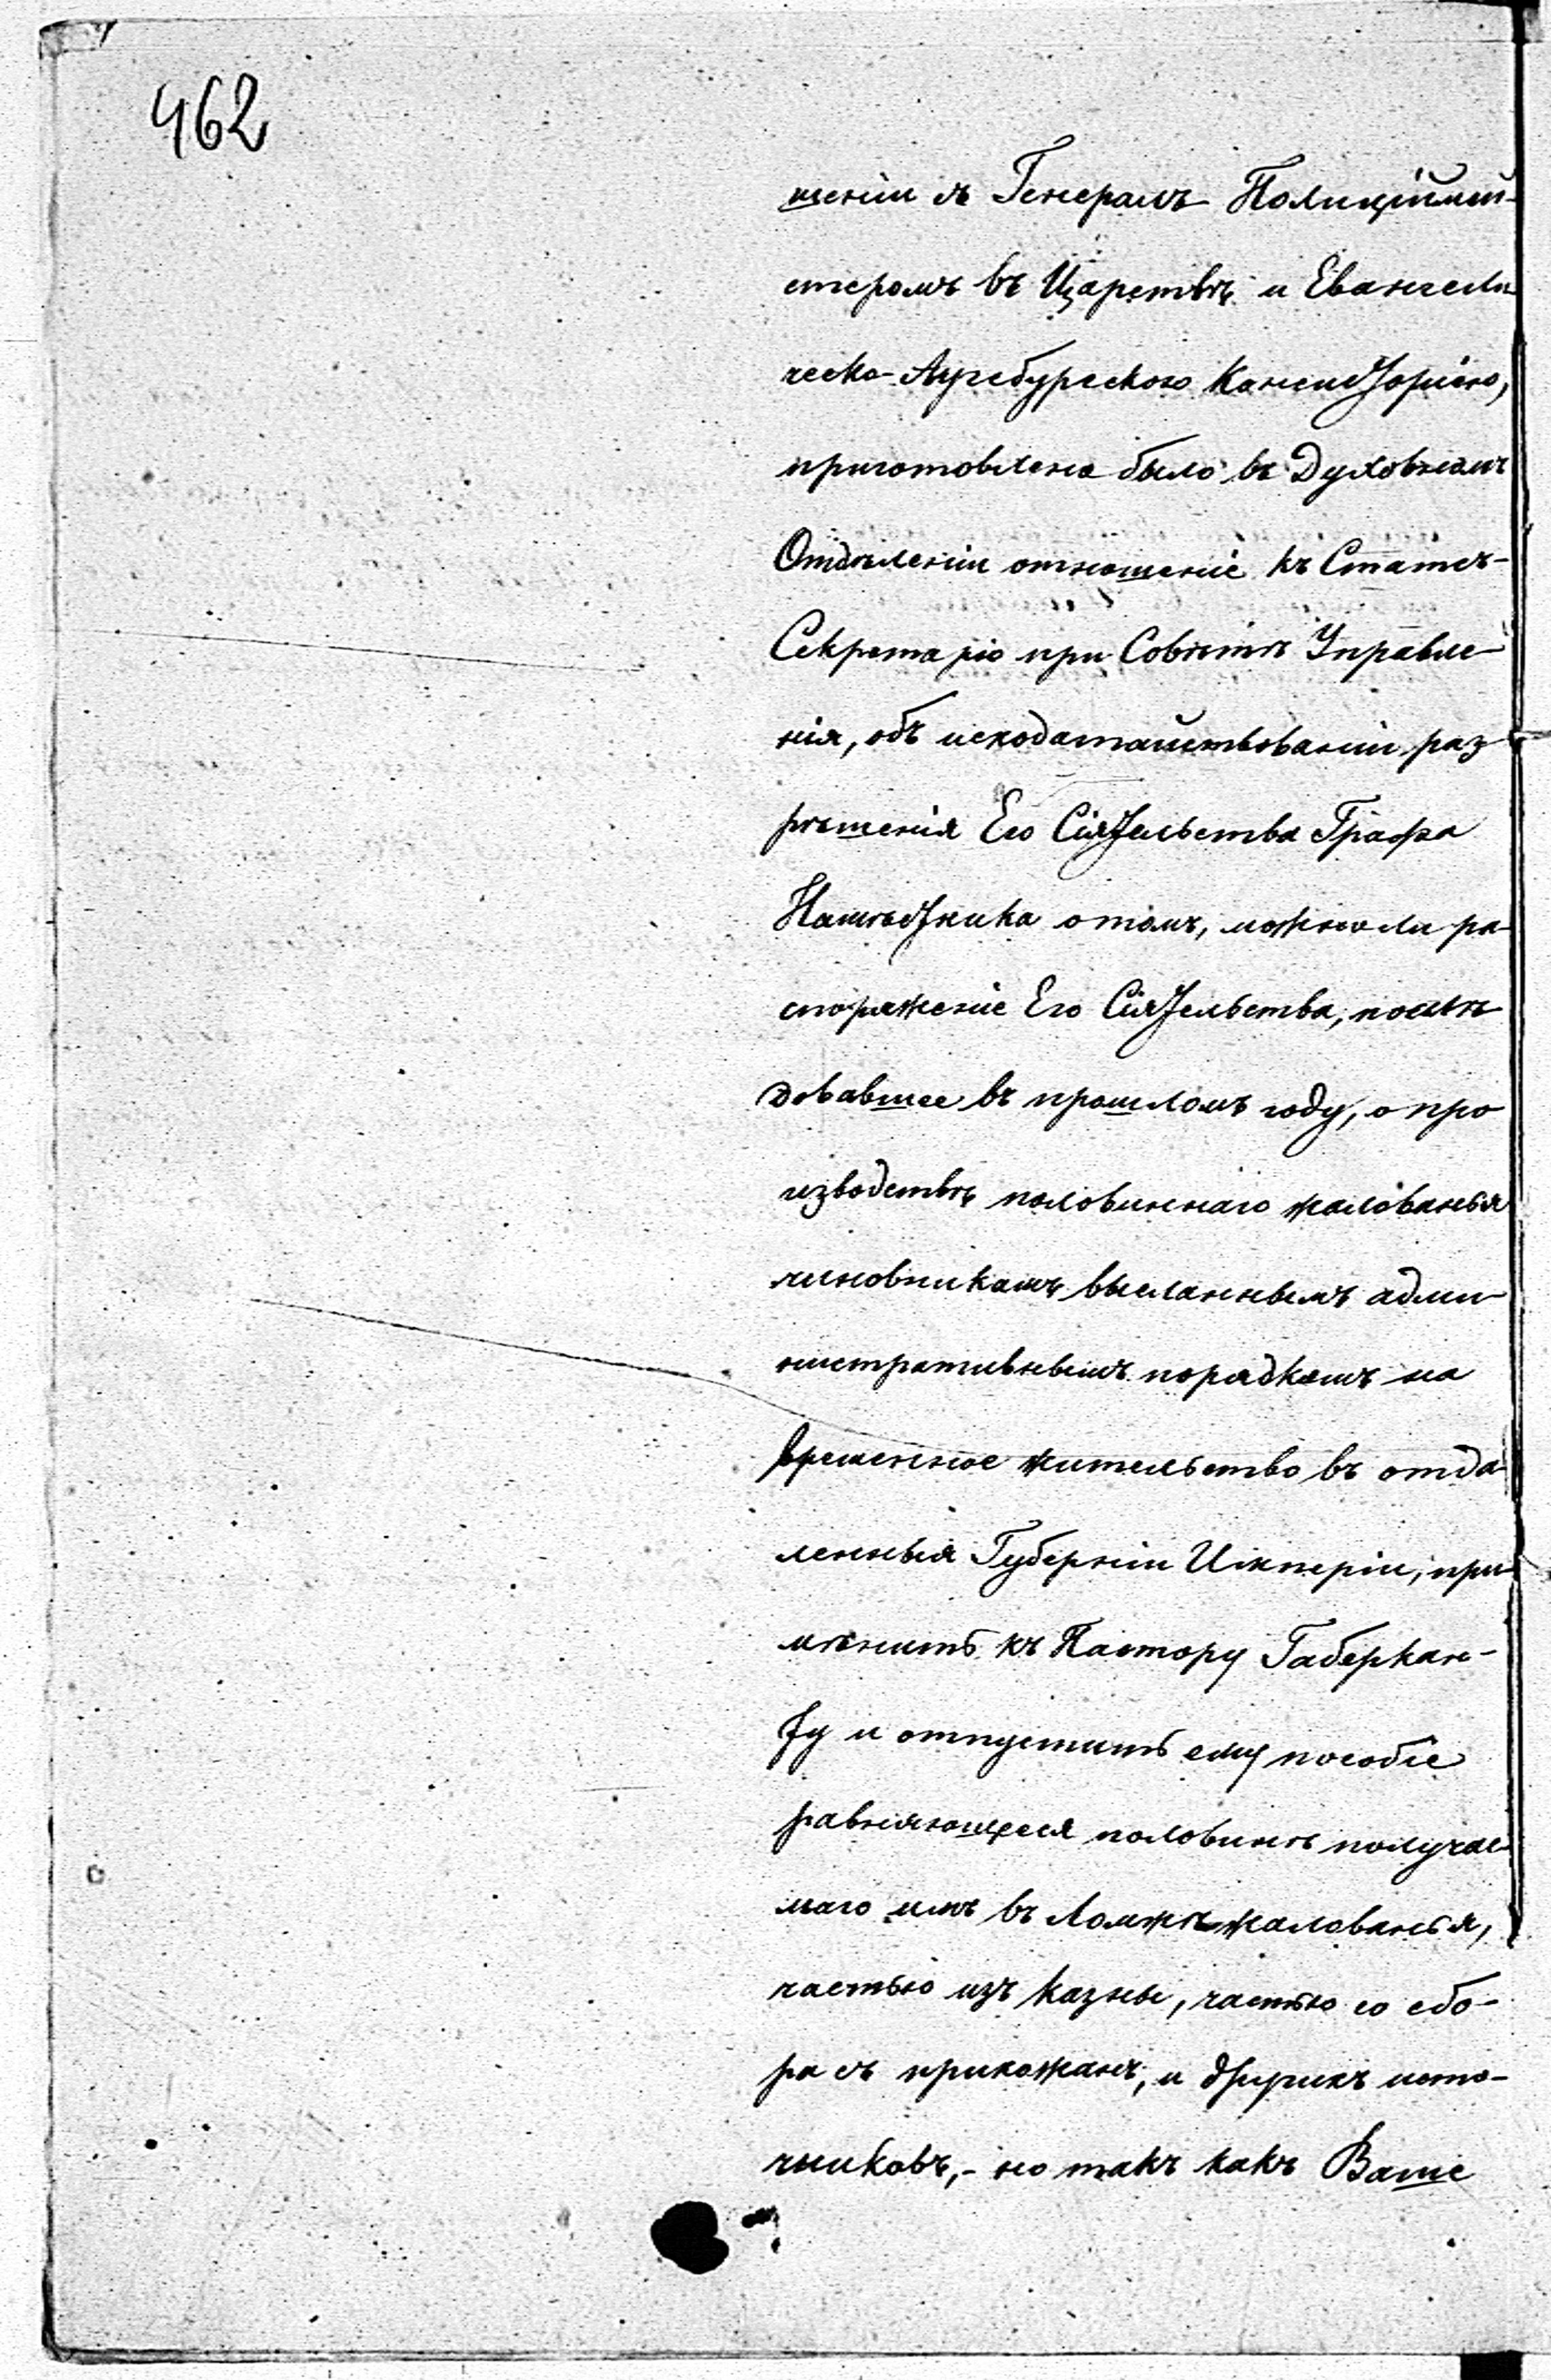 462
шеніи съ Генералъ Полиціймей-
стеромъ въ Царствѣ и Евангели
ческо-Аугсбургскою Консисторіею,
приготовлено было въ Духовномъ
Отдѣленіи отношеніе къ Статсъ-
Секретарю при Совѣтѣ Управле-
нія, объ исходатайствованіи раз-
рѣшенія Его Сіятельства Графа
Намѣстника о томъ, можно ли ра-
споряженіе Его Сіятельства, послѣ
довавшее въ прошломъ году, о про
изводствѣ половиннаго жалованья
чиновникамъ высланнымъ адми-
нистративнымъ порядкомъ на
временное жительство въ отда-
ленныя Губерніи Имперіи, при-
мѣнить къ Пастору Габеркан-
ту и отпустить ему пособіе
равняющееся половинѣ получае-
маго имъ въ Ломжѣ жалованья,
частью изъ казны, частью со сбо-
ра съ прихожанъ, и другихъ исто-
чниковъ,- но такъ какъ Ваше